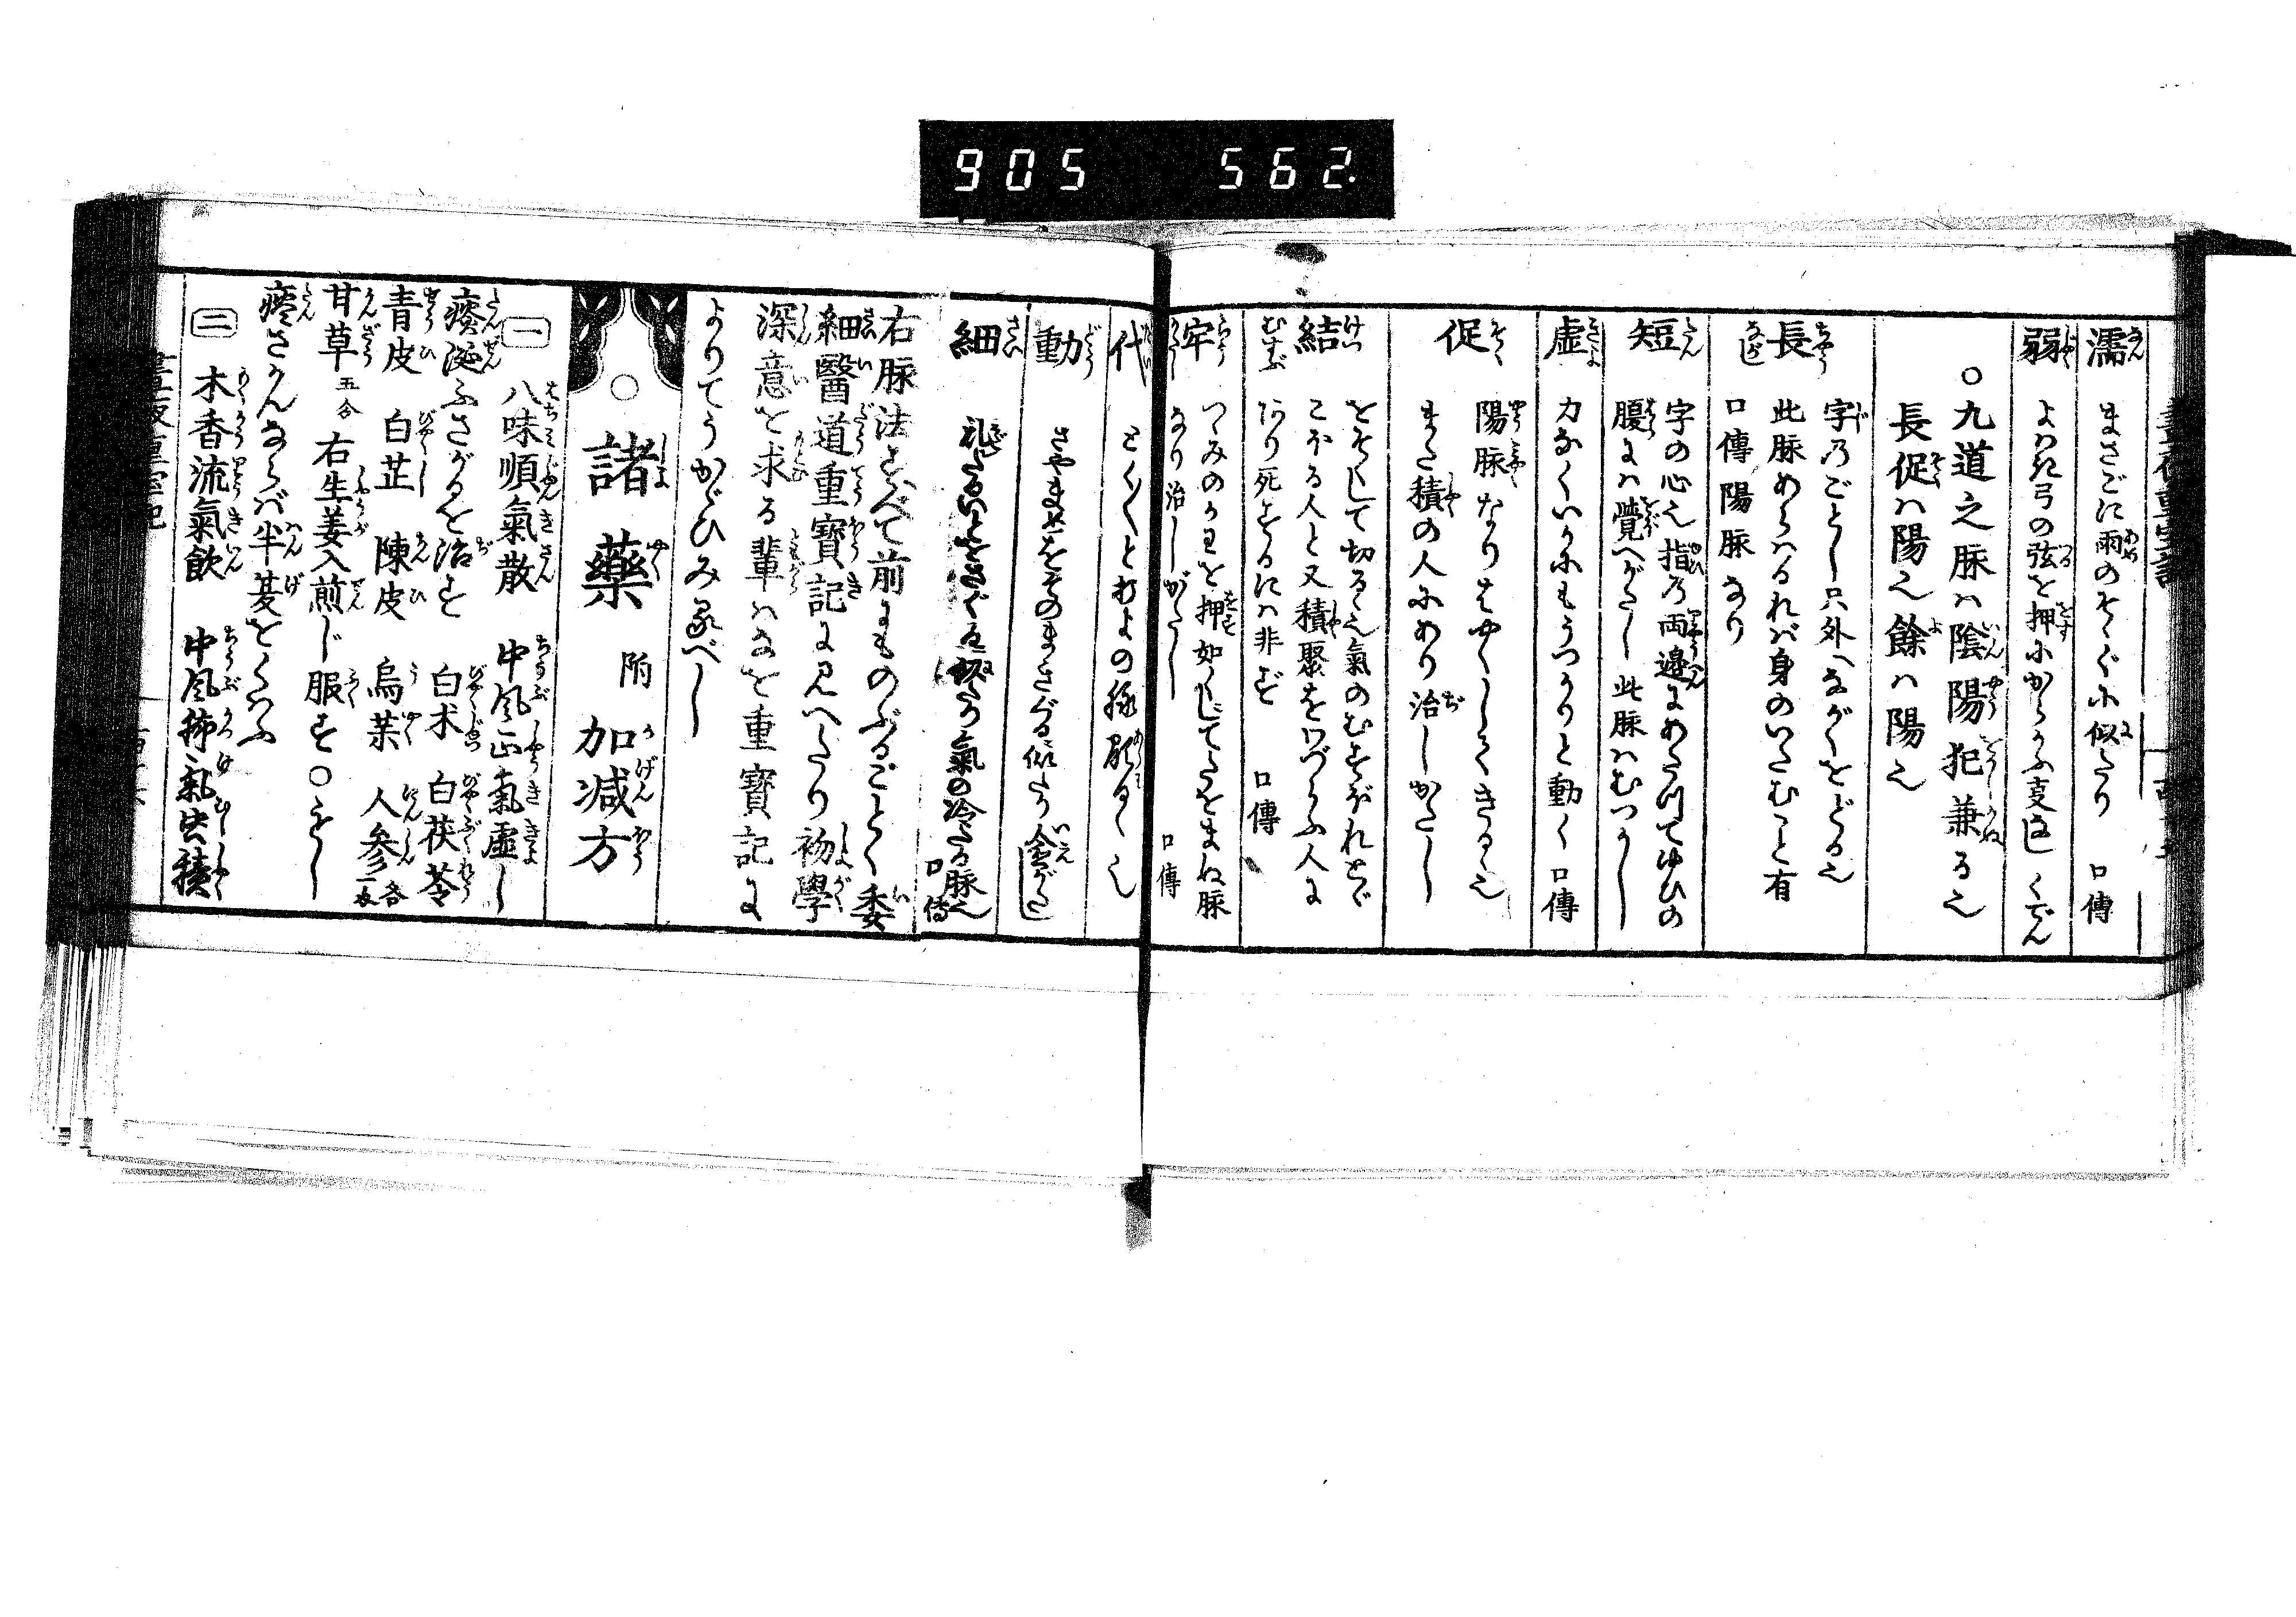 905 562
濡 まさごに雨のそゝぐに似たり 口傳
弱 よわき弓の弦を押にからかふ
〇九道之脉ハ陰陽犯兼る也
長促ハ陽也餘ハ陽也
長 字乃ごとし只外へながくをどる也
此脉あらハるれバ身のいたむこと有
口傳陽脉なり
短 字の心也指乃両邉にあたりてゆひの
腹にハ覺へがたし此脉ハむつかし
虚 力なくいかにもうつかりと動く 口傳
促 陽脉なりはやくしてきる也
また積の人にあり治しかたし
結 をそくして切るゝ也氣のむすぼれとゞ
こほる人と又積聚をわづらふ人に
あり死するにハ非ず 口傳
牢 つゝみのかわを押如くにてたをまぬ脉
なり治しがたし 口傳
代 とくくとむよの
動 さやまめをそのまさぐる似たり
細 氣の冷たる脉也 口傳
右脉法すべて前にものぶるごとく委
細醫道重寶記に見へたり初學
深意を求る輩ハなを重寶記に
よりてうかゞひみるべし
〇諸藥 附 加減方
一 八味順氣散 中風正氣虚し
痰涎ふさがるを治す 白朮 白茯苓
青皮 白芷 陳皮 烏薬 人参 各一匁
甘草 五分 右生姜入煎じ服す〇もし
痰さかんならバ半夏をくハふ
二 木香流氣飲 中風